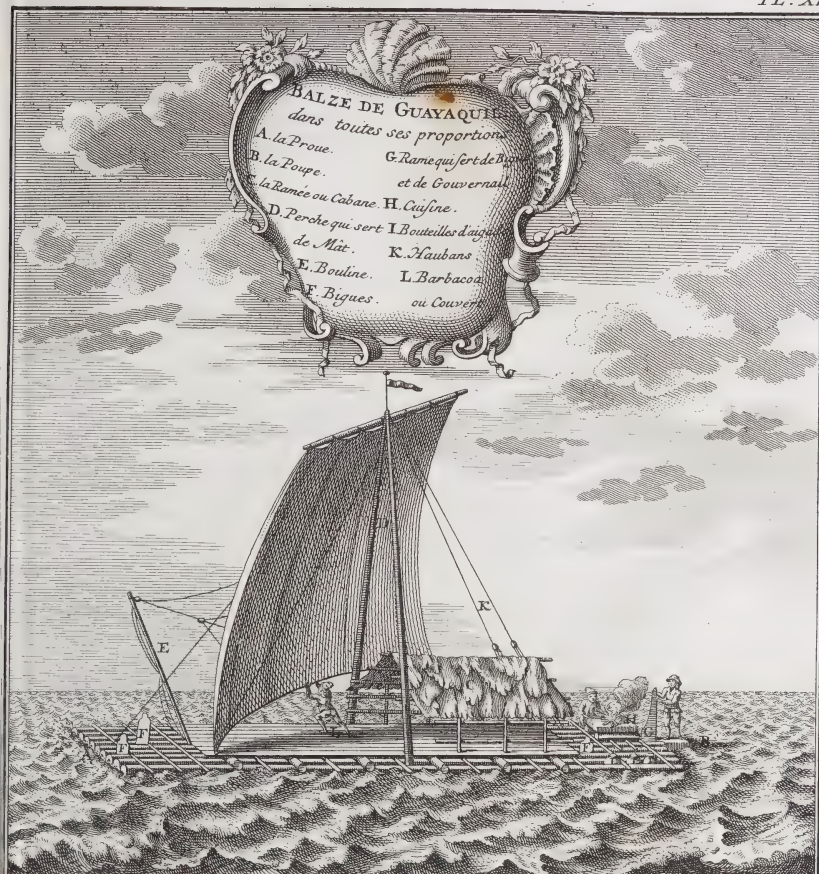 PL. XI
BALZE DE GUAYAQUIL
dans toutes ses proportions
A. la Proue.
B. la Poupe.
la Ramée ou Cabane.
D. Perche qui sert
de Mât.
E. Bouline.
F. Bigues.
G. Rame qui sert de
et de Gouvernail
H. Cuisine.
I. Bouteilles
K. Haubans
L. Barbacoa
ou Couvert
D
K
E
F
F
F
B